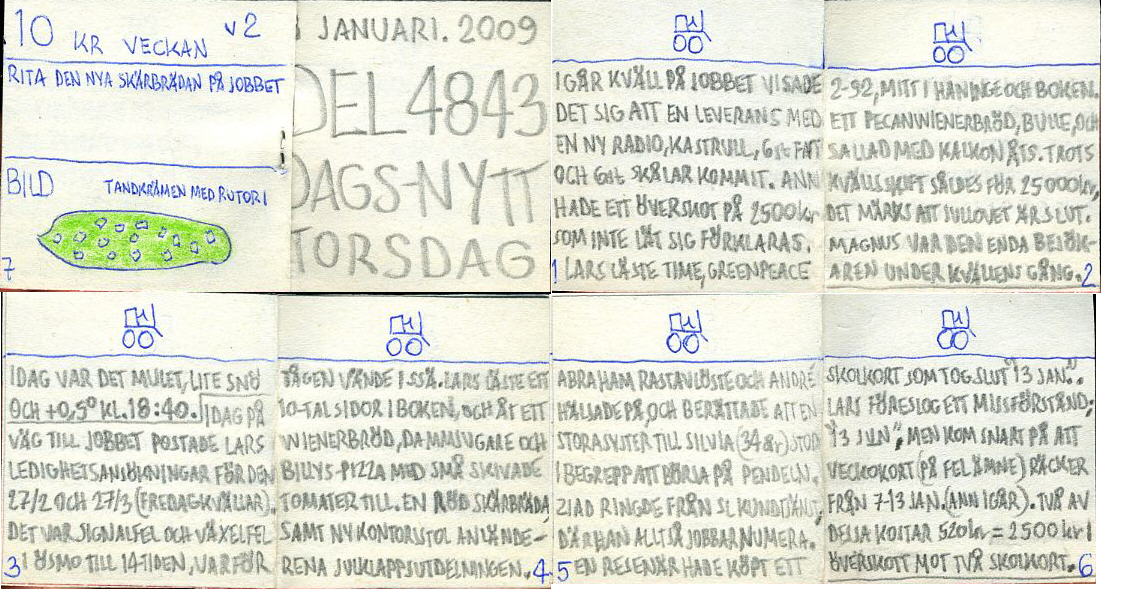 10 KR VECKAN v2
RITA DEN NYA SKÄRBRÄDAN PÅ JOBBET
BILD TANDKRÄMEN MED RUTOR I
7
JANUARI. 2009
DEL 4843
DAGS-NYTT
TORSDAG
IGÅR KVÄLL PÅ JOBBET VISADE
DET SIG ATT EN LEVERANS MED
EN NY RADIO, KASTRULL, 6st FAT
OCH 6st SKÅLAR KOMMIT. ANN
HADE ETT ÖVERSKOT PÅ 2500kr
SOM INTE LÄT SIG FÖRKLARAS.
1 LARS LÄSTE TIME, GREENPEACE
2-92, MITT I HANINGE OCH BOKEN.
ETT PECANWIENERBRÖD, BULLE, OCH
SALLAD MED KALKON ÄTS. TROTS
KVÄLLSKIFT SÅLDES FÖR 25000kr,
DET MÄRKS ATT JULLOVET ÄR SLUT.
MAGNUS VAR DEN ENDA BESÖK-
AREN UNDER KVÄLLENS GÅNG. 2
IDAG VAR DET MULET, LITE SNÖ
OCH +0,5° KL.18:40. IDAG PÅ
VÄG TILL JOBBET POSTADE LARS
LEDIGHETSANSÖKNINGAR FÖR DEN
27/2 OCH 27/3 (FREDAGKVÄLLAR).
DET VAR SIGNALFEL OCH VÄXELFEL
3 I ÖSMO TILL 14-TIDEN, VARFÖR
TÅGEN VÄNDE I SSÄ. LARS LÄSTE ETT
10-TAL SIDOR I BOKEN, OCH ÅT ETT
WIENERBRÖD, DAMMSUGARE OCH
BILLYS-PIZZA MED SMÅ SKIVADE
TOMATER TILL. EN RÖD SKÄRBRÄDA,
SAMT NY KONTORSTOL ANLÄNDE-
RENA JULKLAPPSUTDELNINGEN. 4
ABRAHAM RASTAVLÖSTE OCH ANDRÉ
HÄLSADE PÅ, OCH BERÄTTADE ATT EN
STORASYSTER TILL SILVIA (34år) STOD
I BEGREPP ATT BÖRJA PÅ PENDELN.
ZIAD RINGDE FRÅN SL KUNDTJÄNST,
DÄR HAN ALLTSÅ JOBBAR NUMERA.
5 EN RESENÄR HADE KÖPT ETT
SKOLKORT SOM TOG SLUT "13 JAN."
LARS FÖRESLOG ETT MISSFÖRSTÅND;
"13 JUN", MEN KOM SNART PÅ ATT
VECKOKORT (PÅ FEL ÄMNE) RÄCKER
FRÅN 7-13 JAN. (ANN IGÅR). TVÅ AV
DESSA KOSTAR 520kr = 2500 kr I
ÖVERSKOTT MOT TVÅ SKOLKORT. 6